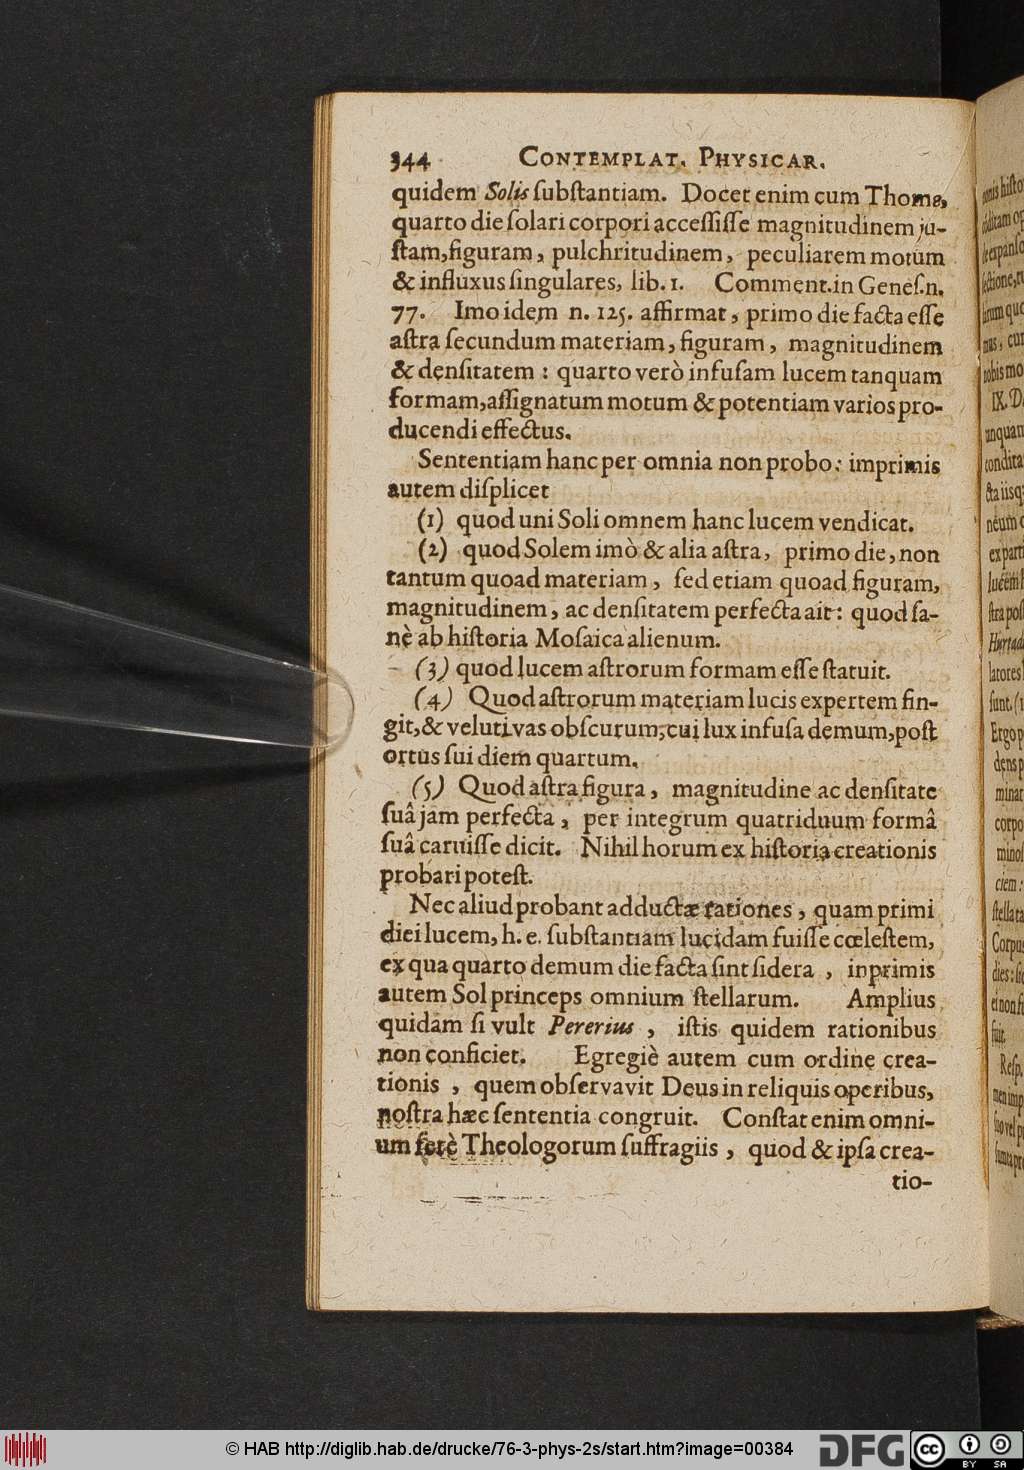 344 CONTEMPLAT. PHYSICAR.
quidem Solis ſubſtantiam. Docet enim cum Thoma,
quarto die ſolari corpori acceſſiſſe magnitudinem ju-
ſtam, figuram, pulchritudinem, peculiarem motum
& influxus ſingulares, lib. 1. Comment. in Geneſ. n.
77. Imo idem n. 125. affirmat, primo die facta eſſe
aſtra ſecundum materiam, figuram, magnitudinem
& denſitatem: quarto verò infuſam lucem tanquam
formam, aſſignatum motum & potentiam varios pro-
ducendi effectus.
Sententiam hanc per omnia non probo: imprimis
autem diſplicet
(1) quod uni Soli omnem hanc lucem vendicat.
(2) quod Solem imò & alia aſtra, primo die, non
tantum quoad materiam, ſed etiam quoad figuram,
magnitudinem, ac denſitatem perfecta ait: quod ſa-
nè ab hiſtoria Moſaica alienum.
(3) quod lucem aſtrorum formam eſſe ſtatuit.
(4) Quod aſtrorum materiam lucis expertem fin-
git, & veluti vas obſcurum, cui lux infuſa demum, poſt
ortus ſui diem quartum.
(5) Quod aſtra figura, magnitudine ac denſitate
ſuâ jam perfecta, per integrum quatriduum formâ
ſuâ caruiſſe dicit. Nihil horum ex hiſtoria creationis
probari poteſt.
Nec aliud probant adductæ rationes, quam primi
diei lucem, h. e. ſubſtantiam lucidam fuiſſe cœleſtem,
ex qua quarto demum die facta ſint ſidera, inprimis
autem Sol princeps omnium ſtellarum. Amplius
quidam ſi vult Pererius, iſtis quidem rationibus
non conficiet. Egregiè autem cum ordine crea-
tionis, quem obſervavit Deus in reliquis operibus,
noſtra hæc ſententia congruit. Conſtat enim omni-
um ferè Theologorum ſuffragiis, quod & ipſa crea-
tio-
© HAB http://diglib.hab.de/drucke/76-3-phys-2s/start.htm?image=00384 DFG cc BY SA